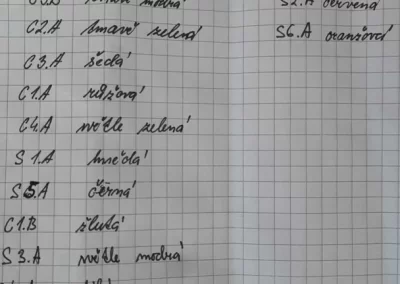 modrá
C2.A tmavě zelená
C3.A šedá
C1.A růžová
C4.A světle zelená
S1.A hnědá
S5.A černá
C1.B žlutá
S3.A světle modrá
S2.A červená
S6.A oranžová